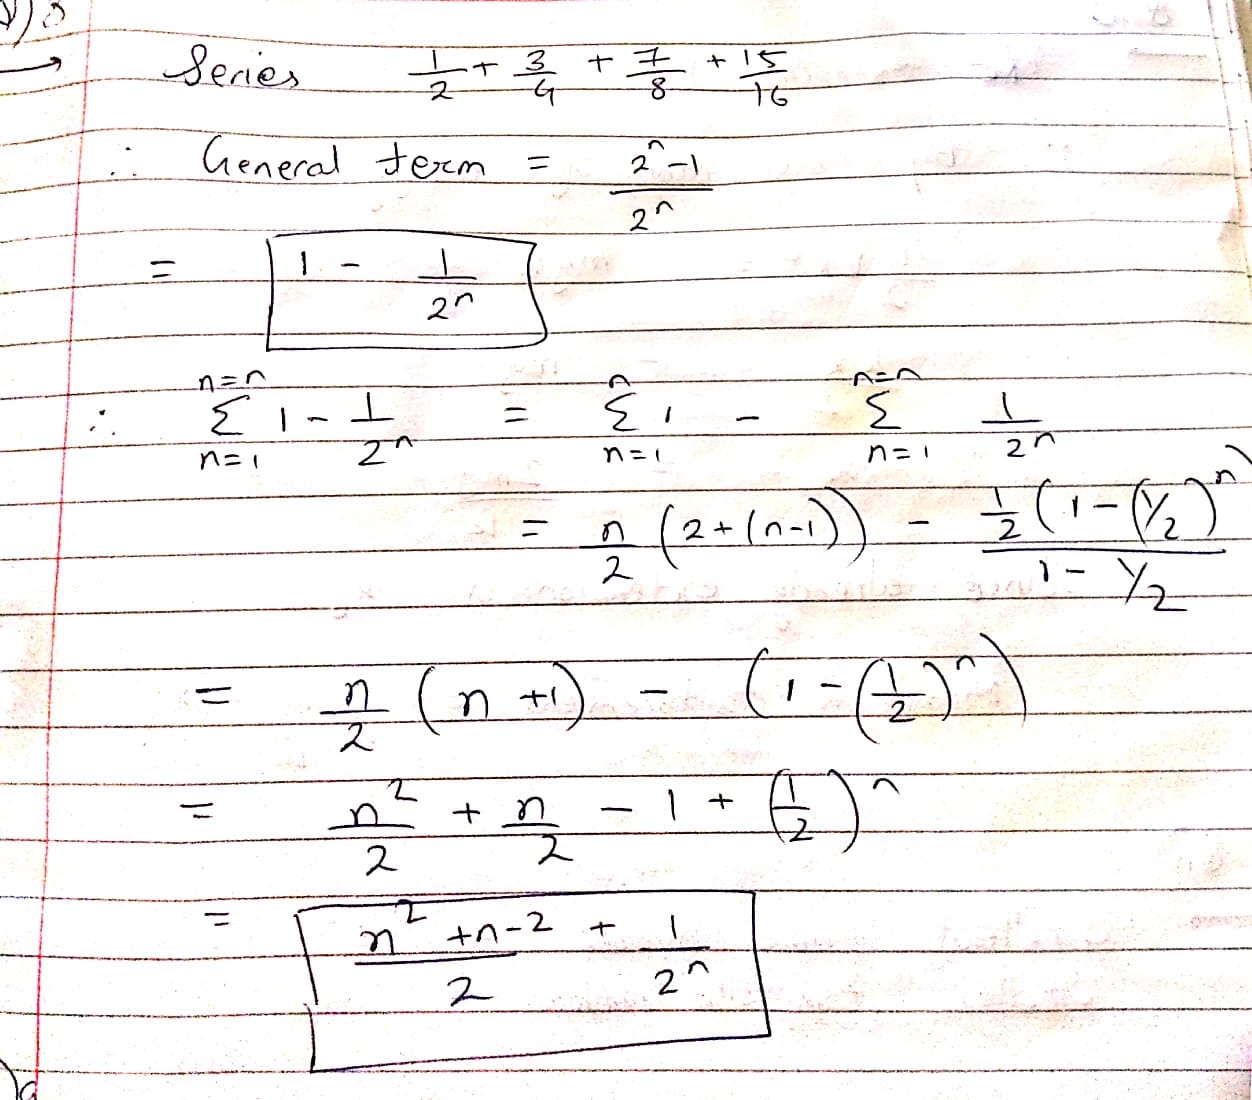 Series 1/2 + 3/4 + 7/8 + 15/16
∴ General term = (2^n - 1)/2^n
= 1 - 1/2^n
∴ Σ_{n=1}^{n=n} 1 - 1/2^n = Σ_{n=1}^{n} 1 - Σ_{n=1}^{n=n} 1/2^n
= n/2 (2+(n-1)) - 1/2 (1-(1/2)^n) / (1 - 1/2)
= n/2 (n+1) - (1-(1/2)^n)
= n^2/2 + n/2 - 1 + (1/2)^n
= (n^2+n-2)/2 + 1/2^n